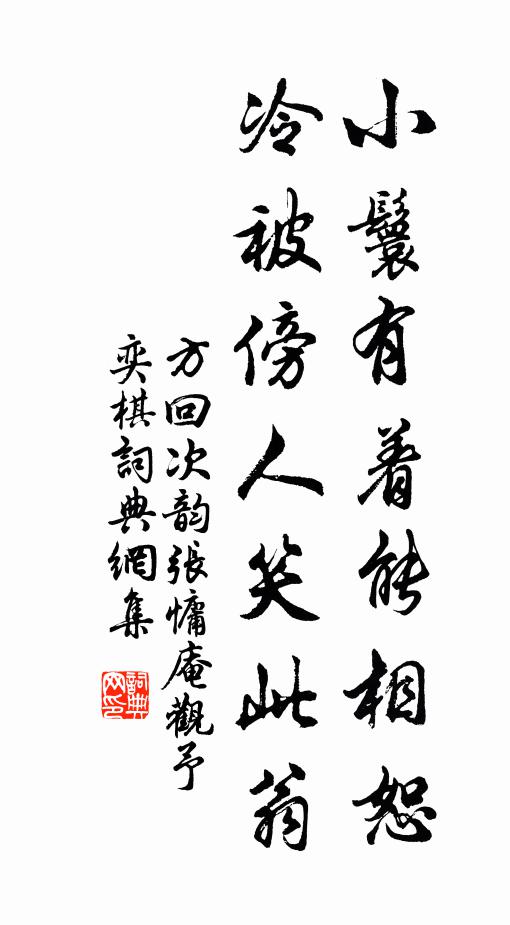 小鬟有着能相恕
冷被傍人笑此翁
方回次韵張慵庵觀予
奕棋詞典網集
詞典网印